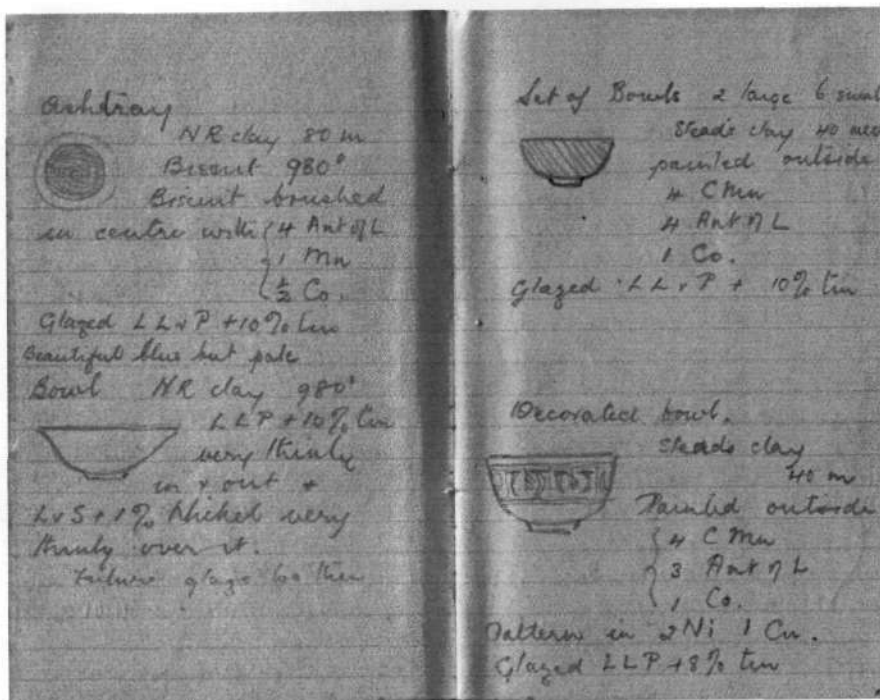 Ashtray
NR clay 80 m
Biscuit 980°
Biscuit brushed
in centre with 4 Ant of L
1 Mn
½ Co.
Glazed LL & P + 10% tin
Beautiful blue but pale
Bowl NR clay 980°
LLP + 10% tin
very thinly
in & out +
L & S + 1% Nickel very
thinly over it.
Failure glaze too thin
Set of Bowls 2 large 6 small
Steads clay 40
painted outside
4 C Mn
4 Ant of L
1 Co.
Glazed LL & P + 10% tin
Decorated bowl.
Steads clay
40 m
Painted outside
4 C Mn
3 Ant of L
1 Co.
Pattern in 2 Ni 1 Cu.
Glazed LLP + 8% tin